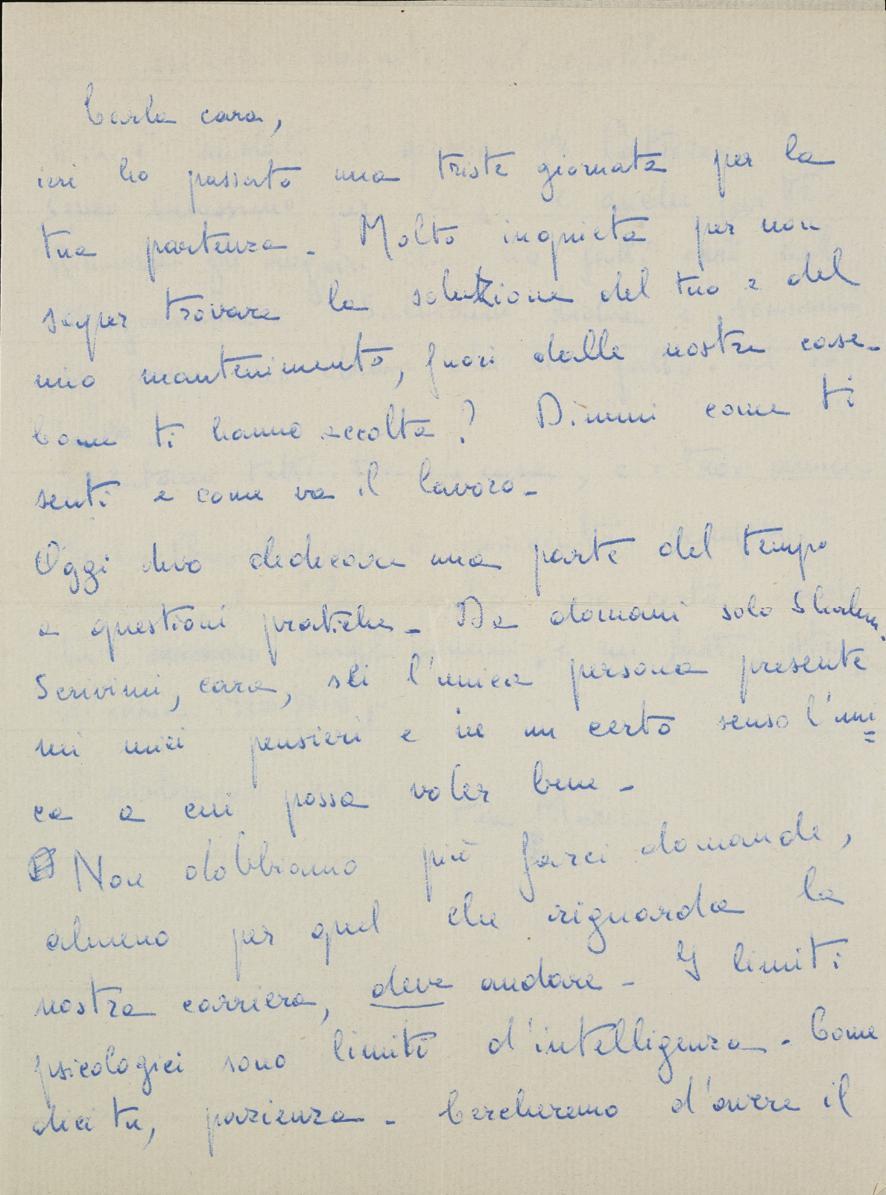 Carla cara,
ieri ho passato una triste giornata per la
tua partenza. Molto inquieta per non
saper trovare la soluzione del tuo e del
mio mantenimento, fuori dalle nostre case.
Come ti hanno accolta? Dimmi come ti
senti e come va il lavoro.
Oggi devo dedicare una parte del tempo
a questioni pratiche. Da domani solo
Scrivimi, cara, sei l'unica persona presente
nei miei pensieri e in un certo senso l'uni
ca a cui possa voler bene.
Non dobbiamo più farci domande,
almeno per quel che riguarda la
nostra carriera, deve andare. I limiti
psicologici sono limiti d'intelligenza. Come
dici tu, pazienza. Cercheremo d'avere il